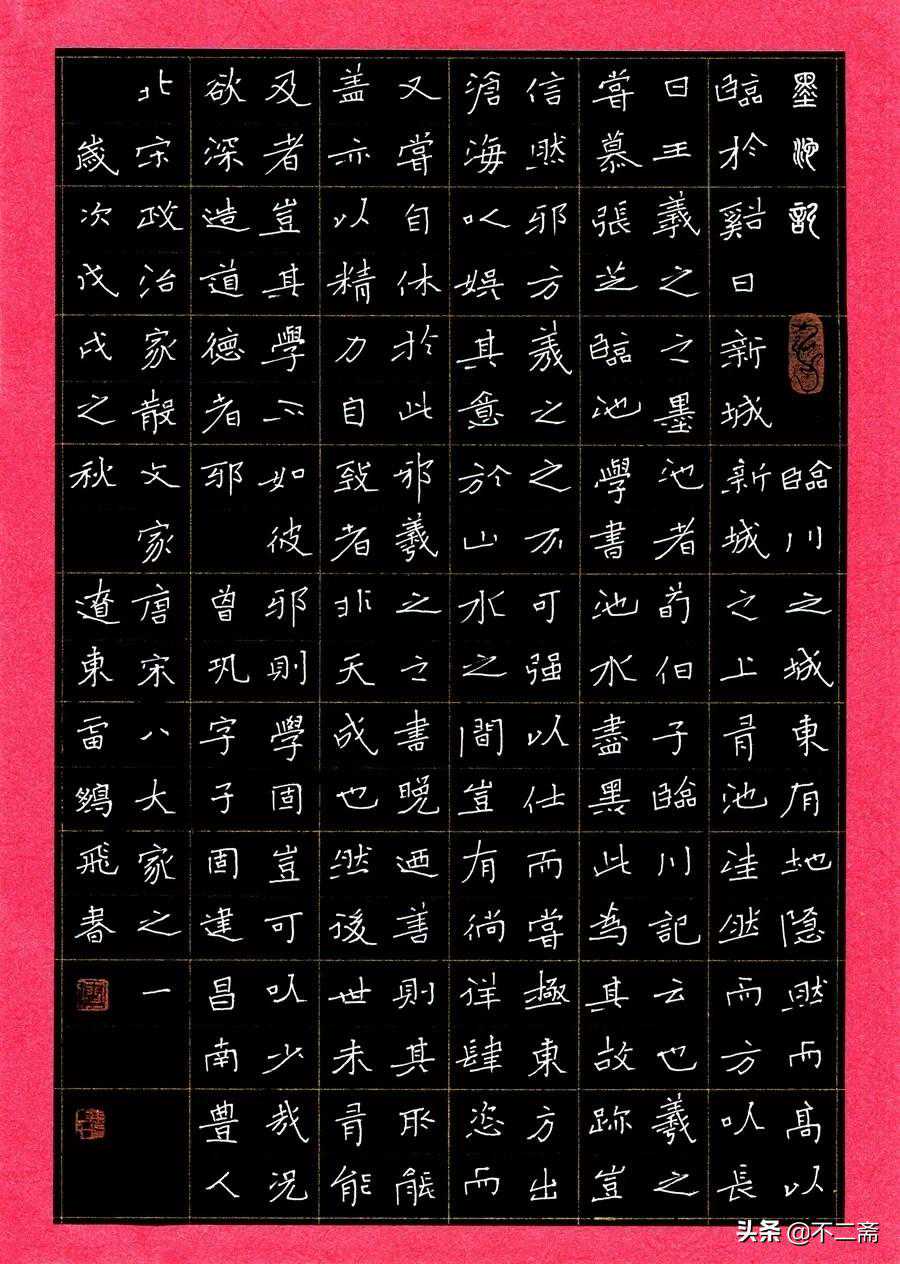 墨池記 臨川之城東有地隱然而高以
臨於谿曰新城新城之上有池洼然而方以長
曰王羲之之墨池者荀伯子臨川記云也羲之
嘗慕張芝臨池學書池水盡黑此為其故跡豈
信然邪方羲之之不可强以仕而嘗極東方出
滄海以娛其意於山水之間豈有徜徉肆恣而
又嘗自休於此邪羲之之書晚迺善則其所能
盖亦以精力自致者非天成也然後世未有能
及者豈其學不如彼邪則學固豈可以少哉况
欲深造道德者邪 曾巩字子固建昌南豊人
北宋政治家散文家唐宋八大家之一
歲次戊戌之秋 遼東雷飛書
头条 @不二斋